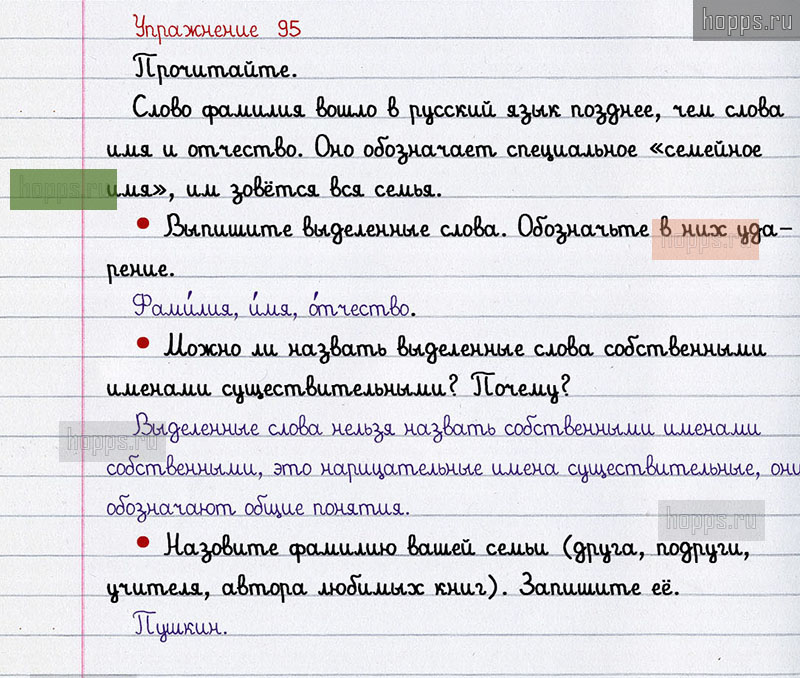 hopps.ru
Упражнение 95
Прочитайте.
Слово фамилия вошло в русский язык позднее, чем слова
имя и отчество. Оно обозначает специальное «семейное
hopps.ru
имя», им зовётся вся семья.
• Выпишите выделенные слова. Обозначьте в них уда-
hopps.ru
рение.
Фами́лия, и́мя, о́тчество.
• Можно ли назвать выделенные слова собственными
именами существительными? Почему?
Выделенные слова нельзя назвать собственными именами
hopps.ru
собственными, это нарицательные имена существительные, они
обозначают общие понятия.
hopps.ru
• Назовите фамилию вашей семьи (друга, подруги,
учителя, автора любимых книг). Запишите её.
Пушкин.